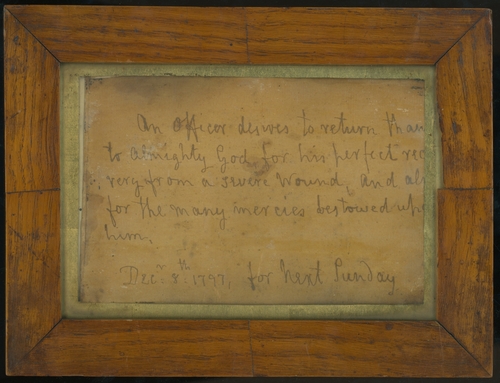 An Officer desires to return than
to Almighty God for his perfect rec
very from a severe Wound, and al
for the many mercies bestowed up
him.
Decr. 8th. 1797, for Next Sunday